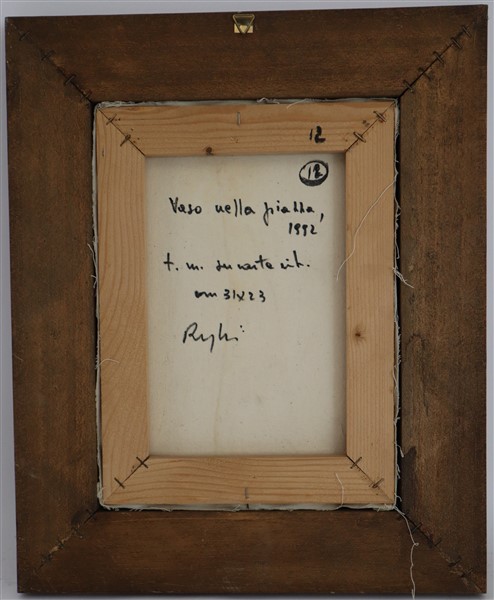 12
12
Vaso nella piazza,
1992
t. m. su carta int.
cm 31x23